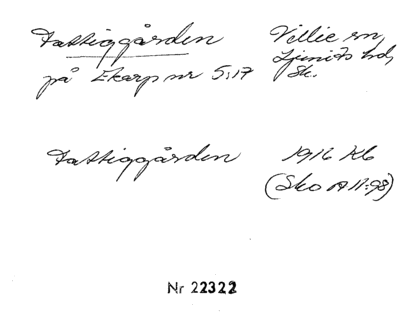 Fattiggården Villie sn,
Ljunits hd,
på Ekarp nr 5:17 Sk.
Fattiggården 1916 Kb
(Sko A II:98)
Nr 22322